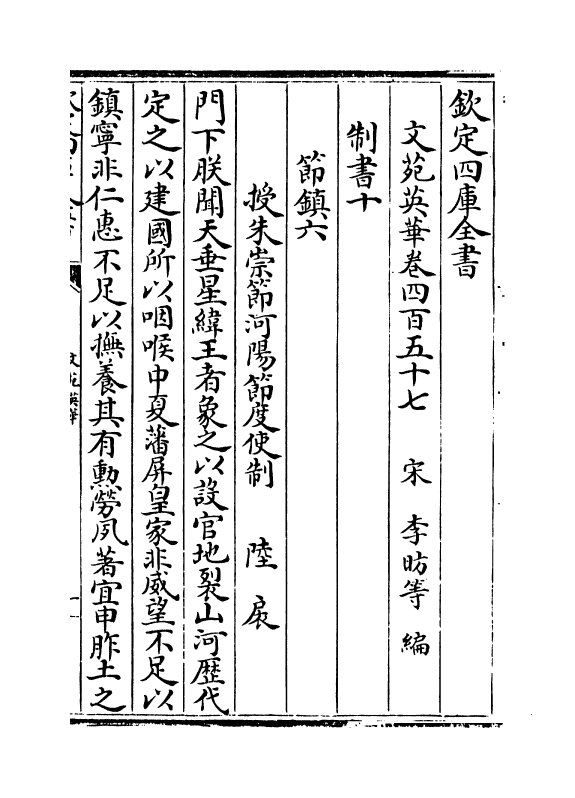 欽定四庫全書
文苑英華卷四百五十七 宋 李昉等 編
制書十
節鎮六
授朱崇節河陽節度使制 陸扆
門下朕聞天垂星緯王者象之以設官地裂山河歷代
定之以建國所以咽喉中夏藩屏皇家非威望不足以
鎮寧非仁惠不足以撫養其有勲勞夙著宜申胙土之
文苑英華
一